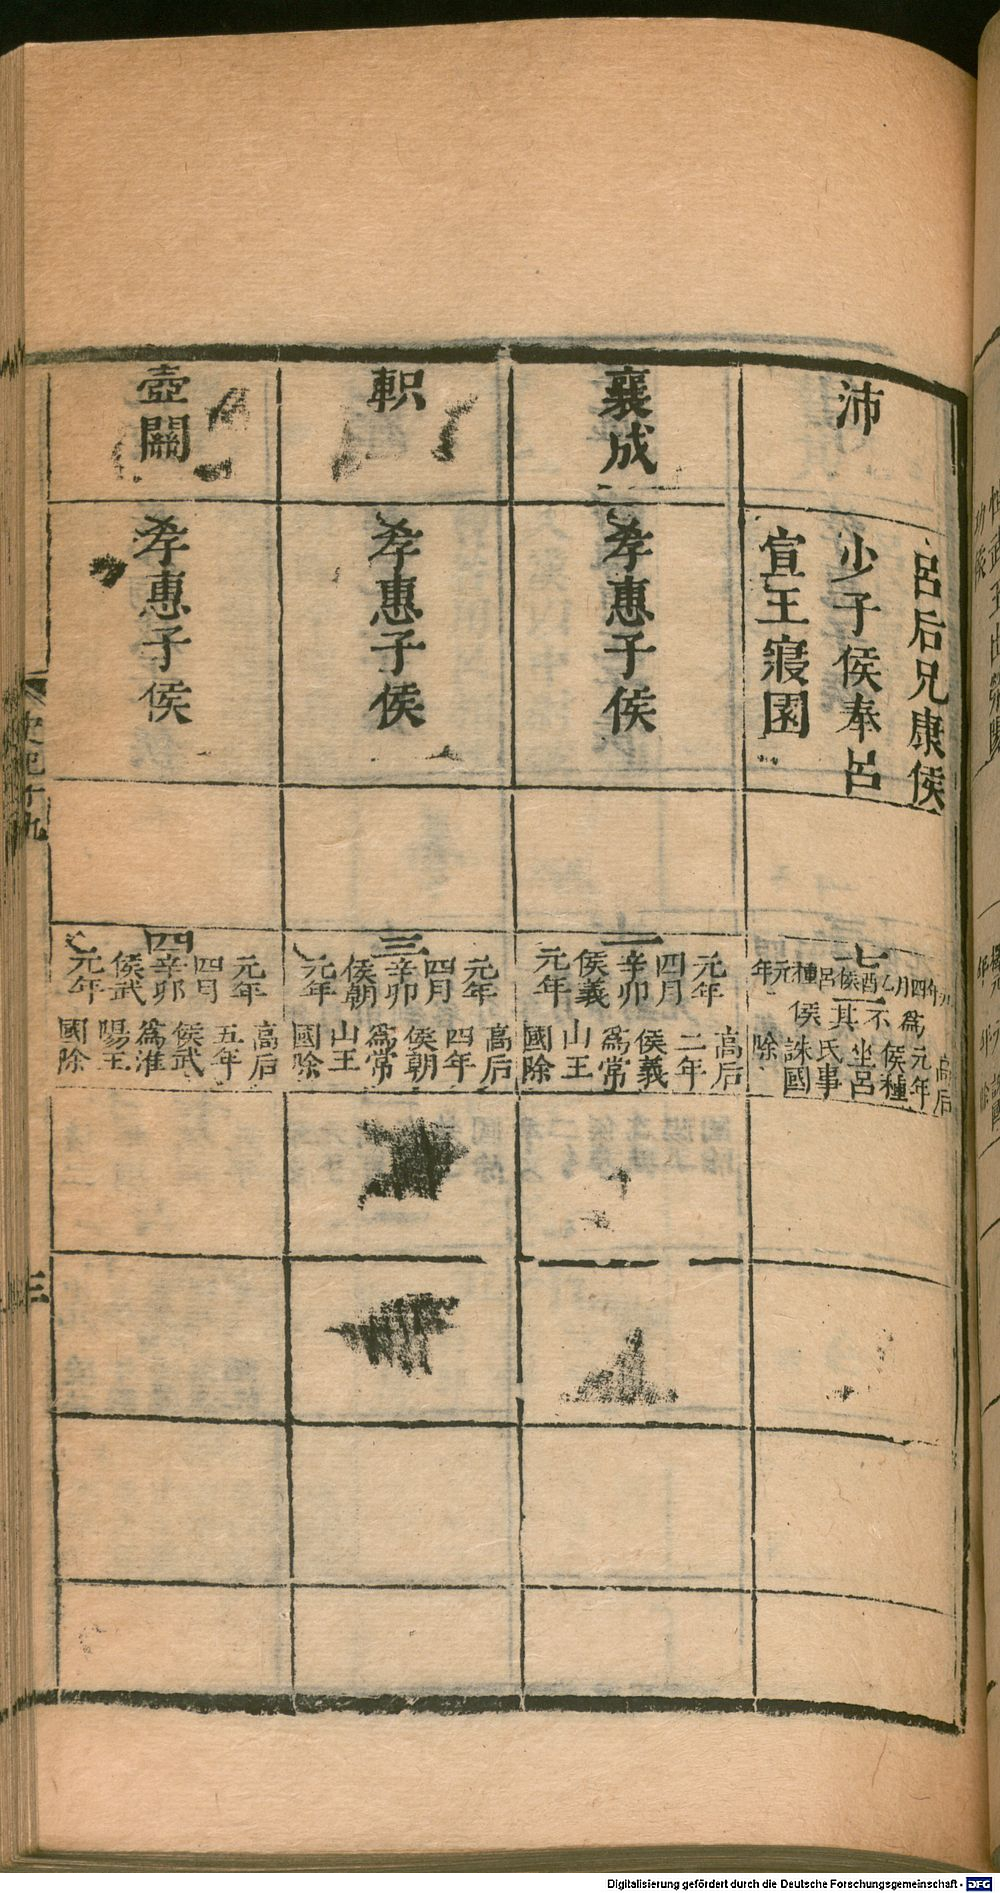 沛
呂后兄康侯
少子侯奉呂
宣王寢園
七
元年四月乙酉侯呂種元年
一
爲不其侯
高后
元年
侯種
坐呂
氏事
誅國
除
襄成
孝惠子侯
一
元年
四月
辛卯
侯義
元年
高后
二年
侯義
爲常
山王
國除
軹
孝惠子侯
三
元年
四月
辛卯
侯朝
元年
高后
四年
侯朝
爲常
山王
國除
壺關
孝惠子侯
四
元年
四月
辛卯
侯武
元年
高后
五年
侯武
爲淮
陽王
國除
史記十九
三
Digitalisierung gefördert durch die Deutsche Forschungsgemeinschaft - DFG